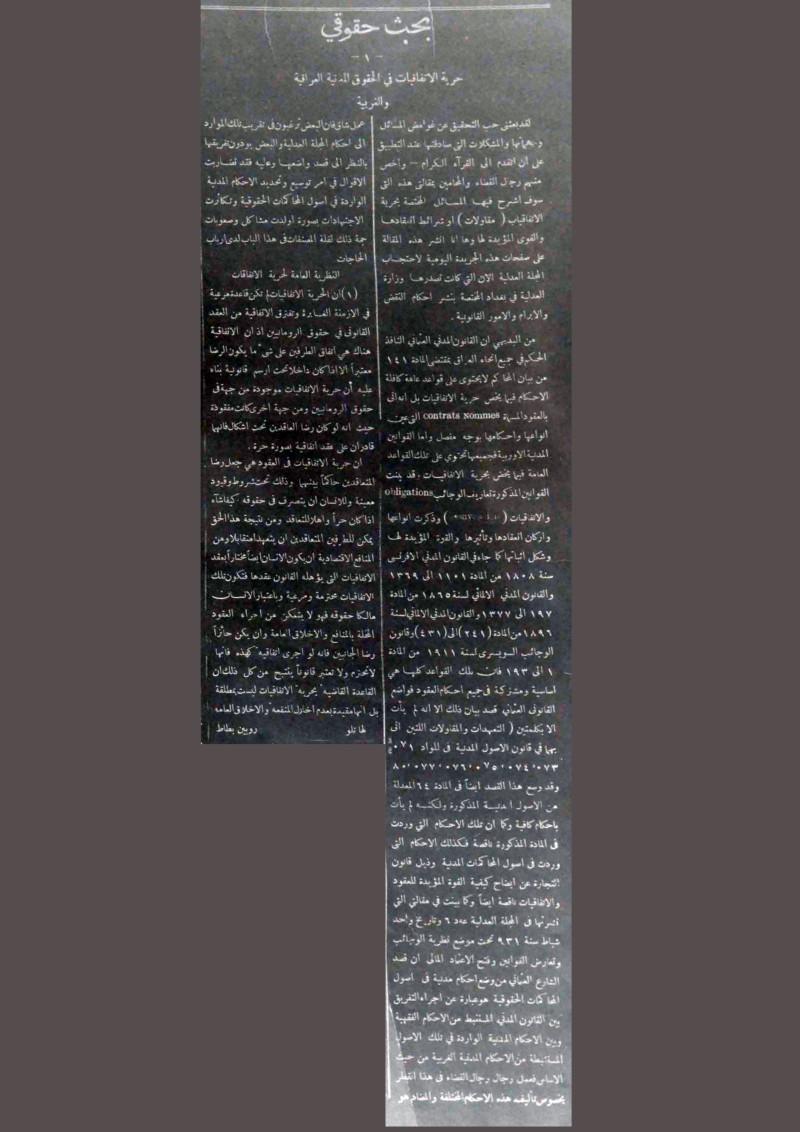 بحث حقوقي
- ١ -
حرية الاتفاقيات في الحقوق المدنية العراقية
والغربية
لقد بعثني حب التحقيق عن غوامض المسائل
ومهماتها والمشكلات التي صادفتها عند التطبيق
على أن اتقدم الى القرآء الكرام - واخص
منهم رجال القضاء والمحامين بمقالتي هذه التي
سوف اشرح فيها المسائل المختصة بحرية
الاتفاقيات ( مقاولات ) او شرائط انعقادها
والقوى المؤيدة لها وها انا انشر هذه المقالة
على صفحات هذه الجريدة اليومية لاحتجاب
المجلة العدلية الان التي كانت تصدرها وزارة
العدلية في بغداد المختصة بنشر احكام النقض
والابرام والامور القانونية .
من البديهي ان القانون المدني العثماني النافذ
الحكم في جميع انحاء العراق بمقتضى المادة ١٤١
من بيان المحاكم لا يحتوى على قواعد عامة كافلة
الاحكام فيما يخص حرية الاتفاقيات بل انه اتى
بالعقود المسماة contrats Nommes التي عين
انواعها واحكامها بوجه مفصل واما القوانين
المدنية الاوربية فجميعها تحتوي على تلك القواعد
العامة فيما يختص بحرية الاتفاقيات وقد بينت
القوانين المذكورة تعاريف الوجائب obligations
والاتفاقيات ( ) وذكرت انواعها
واركان انعقادها وتأثيرها والقوة المؤيدة لها
وشكل اثباتها كما جاء في القانون المدني الافرنسي
سنة ١٨٠٨ من المادة ١١٠١ الى ١٣٦٩
والقانون المدني الالماني لسنة ١٨٦٥ من المادة
١٩٧ الى ١٣٧٧ والقانون المدني الالماني لسنة
١٨٩٦ من المادة (٢٤١) الى (٤٣١) وقانون
الوجائب السويسرى لسنة ١٩١١ من المادة
١ الى ١٩٣ فان تلك القواعد كلها هي
اساسية ومشتركة في جميع احكام العقود فواضع
القانون العثماني قصد بيان ذلك الا انه لم يأت
الا بكلمتين ( التعهدات والمقاولات اللتين اتى
بهما في قانون الاصول المدنية فى المواد ٠٧١
٠٧٣ ٠٧٤ ٠٧٥ ٠٧٦ ٠٧٧ ٨٠
وقد وسع هذا القصد ايضاً في المادة ٦٤ المعدلة
من الاصول المدنية المذكورة ولكنه لم يأت
باحكام كافية وكما ان تلك الاحكام التي وردت
فى المادة المذكورة ناقصة فكذلك الاحكام التى
وردت فى اصول المحاكمات المدنية وذيل قانون
التجارة عن ايضاح كيفية القوة المؤيدة للعقود
والاتفاقيات ناقصة ايضاً وكما بينت في مقالتي التي
نشرتها فى المجلة العدلية عدد ٦ وتاريخ واحد
شباط سنة ٩٣١ تحت موضع نظرية الوجائب
وتعارض القوانين وفتح الاعتماد المالى ان قصد
الشارع العثماني من وضع احكام مدنية فى اصول
المحاكمات الحقوقية هو عبارة عن اجراء التفريق
بين القانون المدني المستنبط من الاحكام الفقهية
وبين الاحكام المدنية الواردة في تلك الاصول
المستنبطة من الاحكام المدنية الغربية من حيث
الاساس فعمل رجال رجال القضاء فى هذا القطر
بخصوص تأليف هذه الاحكام المختلفة والمتضادة هو
عمل شاق فان البعض يرغبون فى تقريب تلك الموارد
الى احكام المجلة العدلية والبعض يودون تفريقها
بالنظر الى قصد واضعها وعليه فقد تضاربت
الاقوال في امر توسيع وتحديد الاحكام المدنية
الواردة في اصول المحاكمات الحقوقية وتكاثرت
الاجتهادات بصورة اولدت مشاكل وصعوبات
جمة ذلك لقلة المصنفات فى هذا الباب لدى ارباب
الحاجات
النظرية العامة لحرية الاتفاقات
(١) ان الحرية الاتفاقيات لم تكن قاعدة مرعية
في الازمنة الغابرة وتفترق الاتفاقية من العقد
القانونى في حقوق الرومانيين اذ ان الاتفاقية
هناك هي اتفاق الطرفين على شيء ما يكون الرضا
معتبراً الا اذا كان داخلا تحت ارسم قانونية بناء
عليه أن حرية الاتفاقيات موجودة من جهة في
حقوق الرومانيين ومن جهة اخرى كانت مفقودة
حيث انه لو كان رضا العاقدين تحت اشكال فانهما
قادران على عقد اتفاقية بصورة حرة .
ان حرية الاتفاقيات فى العقود هي جعل رضا
المتعاقدين حاكماً بينهما وذلك تحت شروط وقيود
معينة وللانسان ان يتصرف في حقوقه كيفما شآء
اذا كان حراً واهلا للتعاقد ومن نتيجة هذا الحق
يمكن للطرفين المتعاقدين ان يتعهدا متقابلا ومن
المنافع الاقتصادية ان يكون الانسان ايضاً مختاراً بعقد
الاتفاقيات التى يؤهله القانون عقدها فتكون تلك
الاتفاقيات محترمة ومرعية وباعتبار الانسان
مالكا حقوقه فهو لا يتمكن من اجراء العقود
المخلة بالمنافع والاخلاق العامة وان يكن حائزاً
رضا الجانبين فانه لو اجرى اتفاقيه كهذه فانها
لا تحترم ولا تعتبر قانوناً ينتج من كل ذلك ان
القاعدة القاضيه بحرية الاتفاقيات ليست بمطلقة
بل انها مقيدة بعدم اخلال المنفعه والاخلاق العامه
لها تلو روبين بطاط